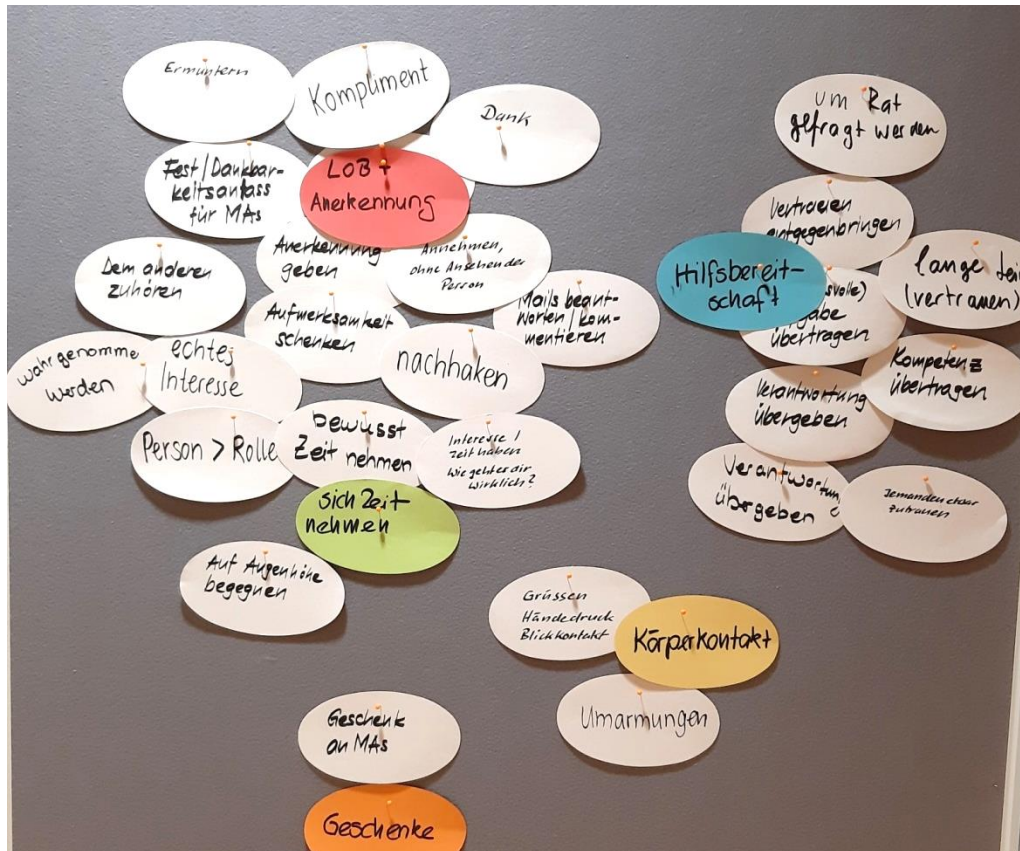 Ermuntern
Kompliment
Dank
Fest/Dankbar-
keitsanlass
für MAs
LOB +
Anerkennung
Anerkennung
geben
Annehmen,
ohne Ansehen der
Person
Dem anderen
zuhören
Aufmerksamkeit
schenken
Mails beant-
worten/kom-
mentieren
wahrgenomme
werden
echtes
Interesse
nachhaken
Person > Rolle
bewusst
Zeit nehmen
Interesse /
Zeit haben
Wie geht es dir
wirklich?
sich Zeit
nehmen
Auf Augenhöhe
begegnen
um Rat
gefragt werden
Vertrauen
entgegenbringen
Hilfsbereit-
schaft
lange
(vertrauen)
übertragen
Kompetenz
übertragen
Verantwortung
übergeben
Verantwortung
übergeben
Jemanden etwas
zutrauen
Grüssen
Händedruck
Blickkontakt
Körperkontakt
Umarmungen
Geschenk
an MAs
Geschenke